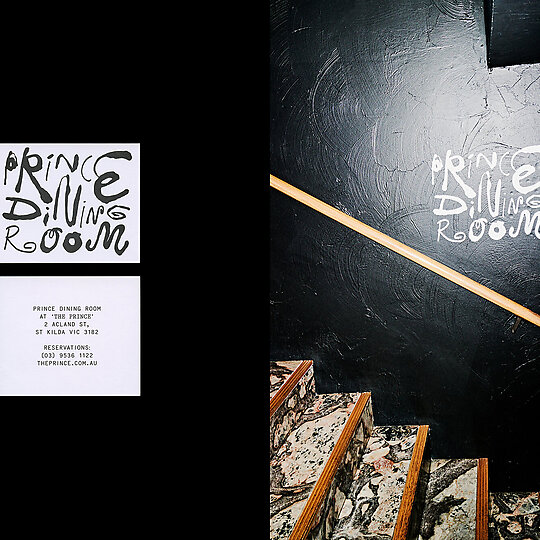 PRINCE
DINING
ROOM
PRINCE DINING ROOM
AT 'THE PRINCE'
2 ACLAND ST,
ST KILDA VIC 3182
RESERVATIONS:
(03) 9536 1122
THEPRINCE.COM.AU
PRINCE
DINING
ROOM